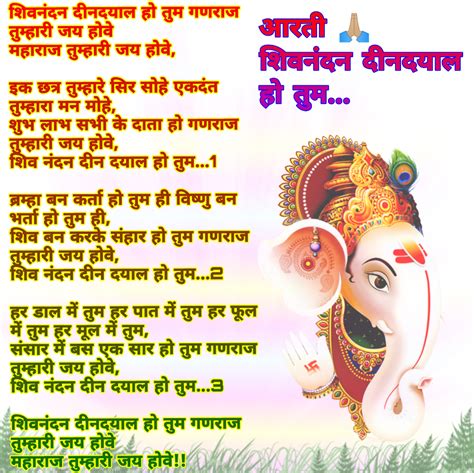 आरती 🙏🏼
शिवनंदन दीनदयाल
हो तुम...
शिवनंदन दीनदयाल हो तुम गणराज
तुम्हारी जय होवे
महाराज तुम्हारी जय होवे,
इक छत्र तुम्हारे सिर सोहे एकदंत
तुम्हारा मन मोहे,
शुभ लाभ सभी के दाता हो गणराज
तुम्हारी जय होवे,
शिव नंदन दीन दयाल हो तुम...1
ब्रम्हा बन कर्ता हो तुम ही विष्णु बन
भर्ता हो तुम ही,
शिव बन करके संहार हो तुम गणराज
तुम्हारी जय होवे,
शिव नंदन दीन दयाल हो तुम...2
हर डाल में तुम हर पात में तुम हर फूल
में तुम हर मूल में तुम,
संसार में बस एक सार हो तुम गणराज
तुम्हारी जय होवे,
शिव नंदन दीन दयाल हो तुम...3
शिवनंदन दीनदयाल हो तुम गणराज
तुम्हारी जय होवे
महाराज तुम्हारी जय होवे!!